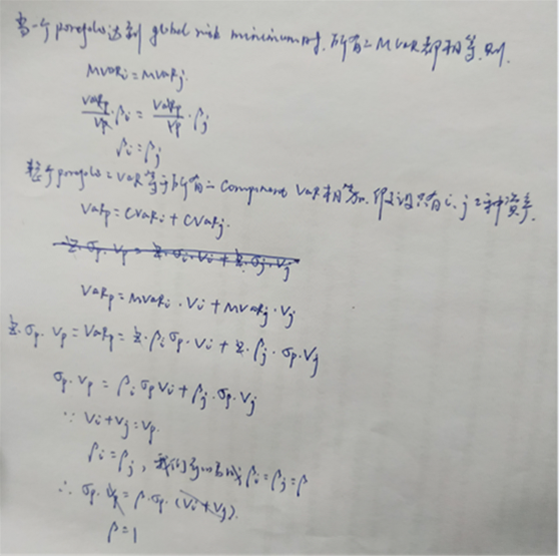 当一个 porfolio 达到 global risk minimum时,所有之MVaR都相等,则.
MVaRi = MVaRj.
VaRp/Vp · βi = VaRp/Vp · βj
βi = βj
整个porfolio之VaR等于所有之Component VaR相加,假设只有i、j二种资产.
VaRp = CVaRi + CVaRj.
z·σp·Vp = z·σi·Vi + z·σj·Vj
VaRp = MVaRi · Vi + MVaRj · Vj
z·σp·Vp = VaRp = z·βi·σp·Vi + z·βj·σp·Vj
σp·Vp = βi σp Vi + βj·σp·Vj
∵ Vi + Vj = Vp
βi = βj, 我们可以写成 βi = βj = β
∴ σp·Vp = β·σp·(Vi + Vj).
β = 1